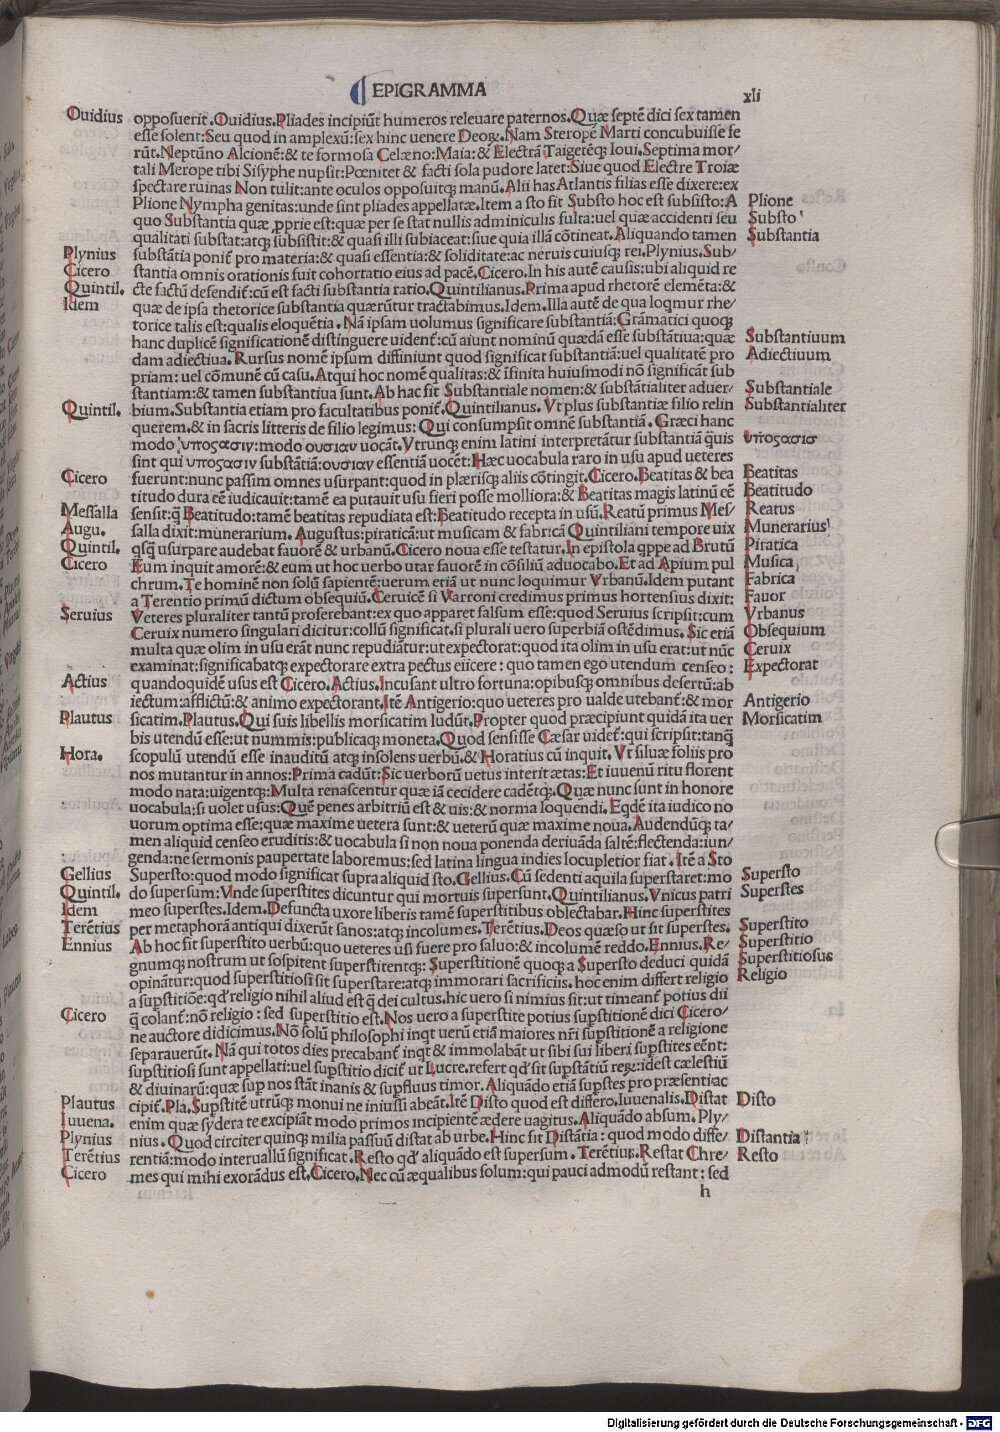 EPIGRAMMA
xli
Ouidius
opposuerit. Ouidius. Pliades incipiũt humeros releuare paternos. Quæ septẽ dici sex tamen
esse solent: Seu quod in amplexũ: sex hinc uenere Deoꝝ. Nam Steropẽ Marti concubuisse fe
rũt. Neptũno Alcionẽ: & te formosa Celæno: Maia: & Electrã Taigetẽqꝫ Ioui. Septima mor/
tali Merope tibi Sisyphe nupsit: Pœnitet & facti sola pudore latet: Siue quod Electre Troiæ
spectare ruinas Non tulit: ante oculos opposuitqꝫ manũ. Alii has Atlantis filias esse dixere: ex
Plione Nympha genitas: unde sint pliades appellatæ. Item a sto sit Substo hoc est subsisto: A
Plione
quo Substantia quæ ꝓprie est: quæ per se stat nullis adminiculis fulta: uel quæ accidenti seu
Substo
qualitati substat: atqꝫ subsistit: & quasi illi subiaceat: siue quia illã cõtineat. Aliquando tamen
Substantia
Plynius
substãtia ponit᷑ pro materia: & quasi essentia: & soliditate: ac neruis cuiusqꝫ rei. Plynius. Sub/
Cicero
stantia omnis orationis fuit cohortatio eius ad pacẽ. Cicero. In his autẽ causis: ubi aliquid re
Quintil.
cte factũ defendit᷑: cũ est facti substantia ratio. Quintilianus. Prima apud rhetorẽ elemẽta: &
Idem
quæ de ipsa rhetorice substantia quærũtur tractabimus. Idem. Illa autẽ de qua loqmur rhe/
torice talis est: qualis eloquẽtia. Nã ipsam uolumus significare substantiã: Grãmatici quoqꝫ
hanc duplicẽ significationẽ distinguere uident᷑: cũ aiunt nominũ quædã esse substãtiua: quæ
Substantiuum
dam adiectiua. Rursus nomẽ ipsum diffiniunt quod significat substantiã: uel qualitatẽ pro
Adiectiuum
priam: uel cõmunẽ cũ casu. Atqui hoc nomẽ qualitas: & ĩfinita huiusmodi nõ significãt sub
stantiam: & tamen substantiua sunt. Ab hac fit Substantiale nomen: & substãtialiter aduer/
Substantiale
Quintil.
bium. Substantia etiam pro facultatibus ponit᷑. Quintilianus. Vt plus substantiæ filio relin
Substantialiter
querem. & in sacris litteris de filio legimus: Qui consumpsit omnẽ substantiã. Græci hanc
modo υποςασιν: modo ουσιαν uocãt. Vtrunqꝫ enim latini interpretãtur substantiã q̃uis
υποσασισ
sint qui υποςασιν substãtiã: ουσιαν essentiã uocẽt: Hæc uocabula raro in usu apud ueteres
Cicero
fuerunt: nunc passim omnes usurpant: quod in plærisqꝫ aliis cõtingit. Cicero. Beatitas & bea
Beatitas
titudo dura eẽ iudicauit: tamẽ ea putauit usu fieri posse molliora: & Beatitas magis latinũ eẽ
Beatitudo
Messalla
sensit: q̃ Beatitudo: tamẽ beatitas repudiata est: Beatitudo recepta in usũ. Reatũ primus Mes/
Reatus
Augu.
salla dixit: munerarium. Augustus: piraticã: ut musicam & fabricã Quintiliani tempore uix
Munerarius
Quintil.
qsq̃ usurpare audebat fauorẽ & urbanũ. Cicero noua esse testatur. In epistola qppe ad Brutũ
Piratica
Cicero
Eum inquit amorẽ: & eum ut hoc uerbo utar fauorẽ in cõsiliũ aduocabo. Et ad Apium pul
Musica
chrum. Te hominẽ non solũ sapientẽ: uerum etiã ut nunc loquimur Vrbanũ. Idem putant
Fabrica
a Terentio primũ dictum obsequiũ. Ceruicẽ si Varroni credimus primus hortensius dixit:
Fauor
Seruius
Veteres pluraliter tantũ proferebant: ex quo apparet falsum esse: quod Seruius scripsit: cum
Vrbanus
Ceruix numero singulari dicitur: collũ significat. si plurali uero superbiã ostẽdimus. Sic etiã
Obsequium
multa quæ olim in usu erãt nunc repudiãtur: ut expectorat: quod ita olim in usu erat: ut nũc
Ceruix
examinat: significabatqꝫ expectorare extra pectus eiicere: quo tamen ego utendum censeo:
Expectorat
Actius
quandoquidẽ usus est Cicero. Actius. Incusant ultro fortuna: opibusqꝫ omnibus desertũ: ab
iectum: afflictũ: & animo expectorant. Itẽ Antigerio: quo ueteres pro ualde utebant᷑: & mor
Antigerio
Plautus
sicatim. Plautus. Qui suis libellis morsicatim ludũt. Propter quod præcipiunt quidã ita uer
Morsicatim
bis utendũ esse: ut nummis: publicaqꝫ moneta. Quod sensisse Cæsar uidet᷑: qui scripsit: tanq̃
Hora.
scopulũ utendũ esse inauditũ atqꝫ insolens uerbũ. & Horatius cũ inquit. Vt siluæ foliis pro
nos mutantur in annos: Prima cadũt: Sic uerborũ uetus interit ætas: Et iuuenũ ritu florent
modo nata: uigentqꝫ: Multa renascentur quæ iã cecidere cadẽtqꝫ. Quæ nunc sunt in honore
uocabula: si uolet usus: Quẽ penes arbitriũ est & uis: & norma loquendi. Eqdẽ ita iudico no
uorum optima esse: quæ maxime uetera sunt: & ueterũ quæ maxime noua. Audendũqꝫ ta/
men aliquid censeo eruditis: & uocabula si non noua ponenda deriuãda saltẽ: flectenda: iun/
genda: ne sermonis paupertate laboremus: sed latina lingua indies locupletior fiat. Itẽ a Sto
Gellius
Supersto: quod modo significat supra aliquid sto. Gellius. Cũ sedenti aquila superstaret: mo
Supersto
Quintil.
do supersum: Vnde superstites dicuntur qui mortuis supersunt. Quintilianus. Vnicus patri
Superstes
Idem
meo superstes. Idem. Defuncta uxore liberis tamẽ superstitibus oblectabar. Hinc superstites
Terẽtius
per metaphorã antiqui dixerũt sanos: atqꝫ incolumes. Terẽtius. Deos quæso ut sit superstes.
Superstito
Ennius
Ab hoc fit superstito uerbũ: quo ueteres usi fuere pro saluo: & incolumẽ reddo. Ennius. Re/
Superstitio
gnumqꝫ nostrum ut sospitent superstitentqꝫ: Superstitionẽ quoqꝫ a Supersto deduci quidã
Superstitiosus
opinãtur: quod superstitiosi sit superstare: atqꝫ immorari sacrificiis. hoc enim differt religio
Religio
a supstitiõe: qd' religio nihil aliud est q̃ dei cultus. hic uero si nimius sit: ut timeant᷑ potius dii
Cicero
q̃ colant᷑: nõ religio: sed superstitio est. Nos uero a superstite potius supstitionẽ dici Cicero/
ne auctore didicimus. Nõ solũ philosophi inqt uerũ etiã maiores nr̃i supstitionẽ a religione
separauerũt. Nã qui totos dies precabant᷑ inqt & immolabãt ut sibi sui liberi supstites eẽnt:
supstitiosi sunt appellati: uel supstitio dicit᷑ ut Lucre. refert qd' sit supstãtiũ reꝝ: idest cælestiũ
& diuinarũ: quæ sup nos stãt inanis & supfluus timor. Aliquãdo etiã supstes pro præsentiac
Plautus
cipit᷑. Pla. Supstitẽ utrũqꝫ monui ne iniussi abeãt. Itẽ Disto quod est differo. Iuuenalis. Distat
Disto
Iuuena.
enim quæ sydera te excipiãt modo primos incipientẽ ædere uagitus. Aliquãdo absum. Ply/
Plynius
nius. Quod circiter quinqꝫ milia passuũ distat ab urbe. Hinc fit Distãtia: quod modo diffe/
Distantia
Terẽtius
rentiã: modo interuallũ significat. Resto qd' aliquãdo est supersum. Terẽtius. Restat Chre/
Resto
Cicero
mes qui mihi exorãdus est. Cicero. Nec cũ æqualibus solum: qui pauci admodũ restant: sed
h
Digitalisierung gefördert durch die Deutsche Forschungsgemeinschaft - DFG